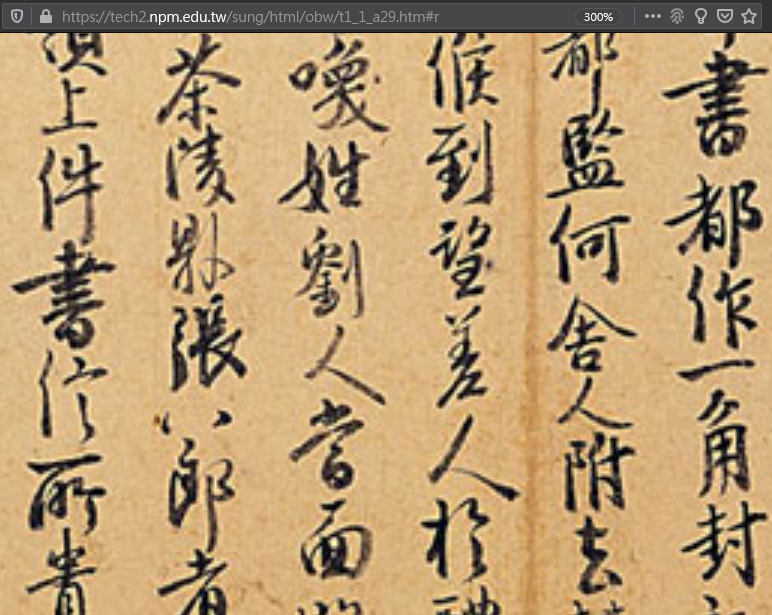 https://tech2.npm.edu.tw/sung/html/obw/t1_1_a29.htm#r
300%
書都作一角封
都監何舍人附去
候到望差人於
喚姓劉人當面
茶陵縣張八郎者
上件書信所貴